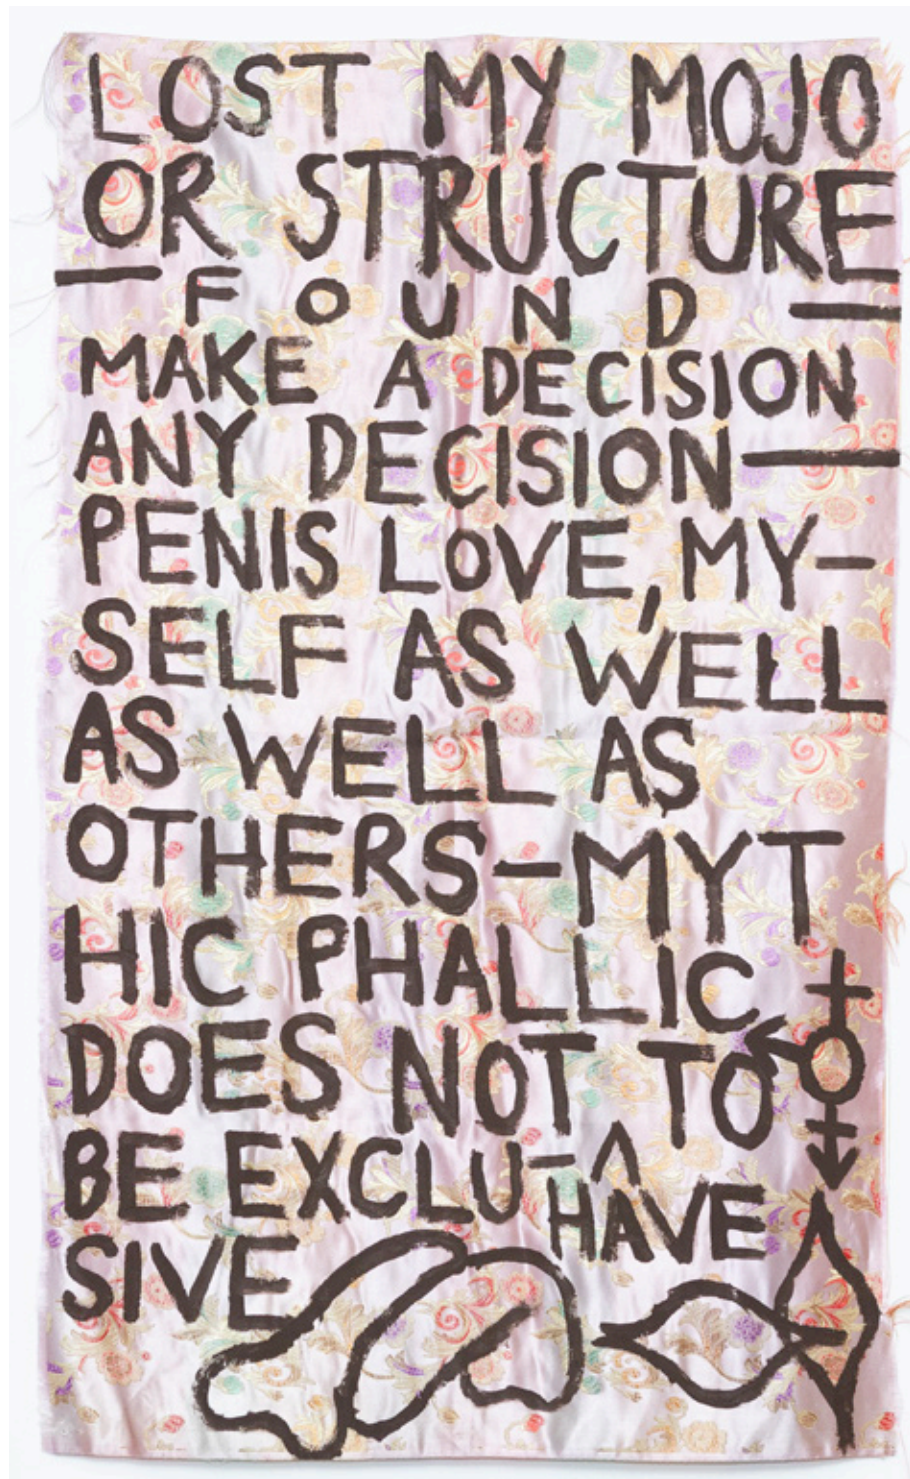 LOST MY MOJO
OR STRUCTURE
— FOUND —
MAKE A DECISION
ANY DECISION —
PENIS LOVE, MY-
SELF AS WELL
AS WELL AS
OTHERS-MYT
HIC PHALLIC
DOES NOT TO
BE EXCLU- ^
HAVE
SIVE